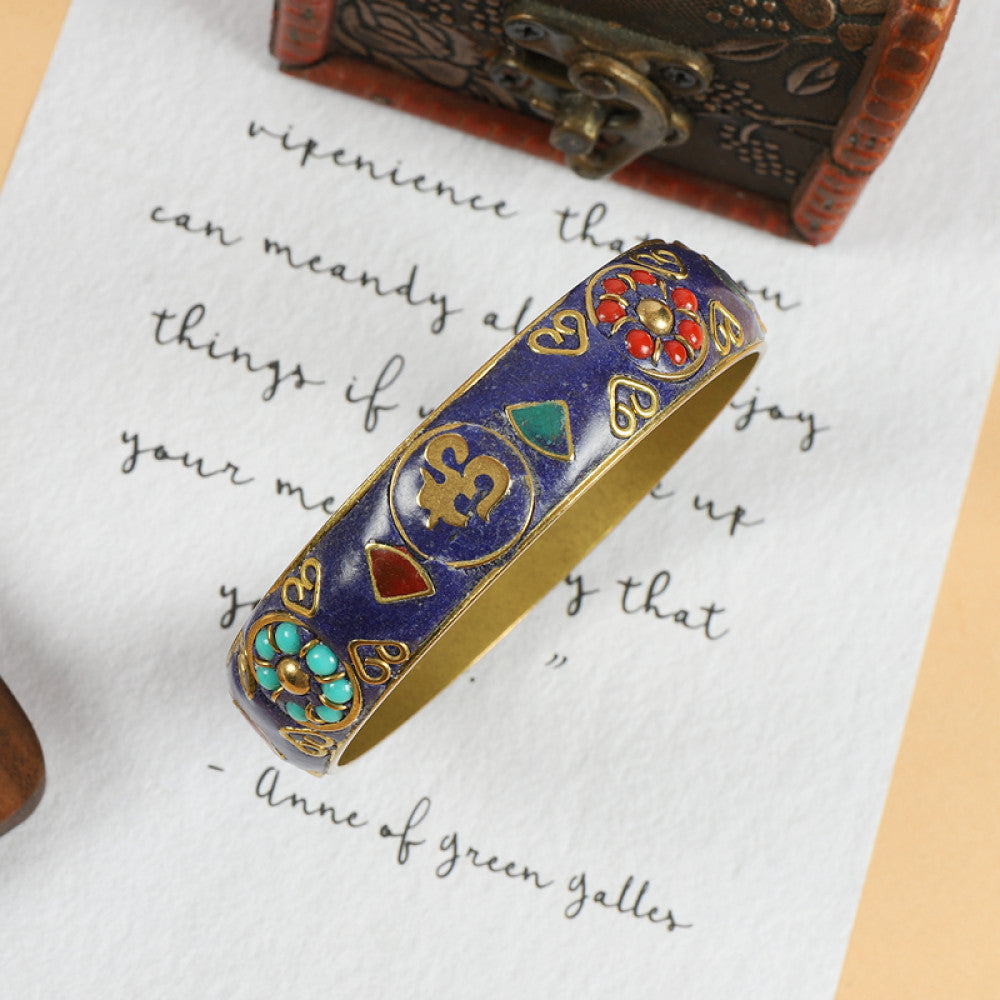 vipenience that you
can meandy al
things if y enjoy
your me e up
y y that
."
- Anne of green galles